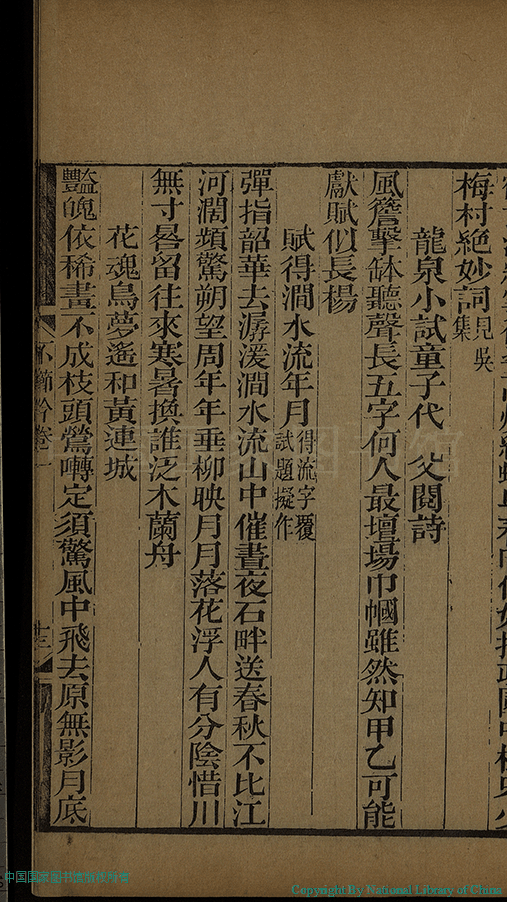 梅村絶妙詞見吳集
龍泉小試童子代 父閱詩
風簷擊缽聽聲長五字何人最壇場巾幗雖然知甲乙可能
獻賦似長楊
賦得澗水流年月得流字覆試題擬作
彈指韶華去潺湲澗水流山中催晝夜石畔送春秋不比江
河濶頻驚朔望周年年垂柳映月月落花浮人有分陰惜川
無寸晷留往來寒暑換誰泛木蘭舟
花魂鳥夢遙和黃連城
豔魄依稀畫不成枝頭鶯囀定須驚風中飛去原無影月底
不節吟卷一
十三
中国国家图书馆
Copyright By National Library of China